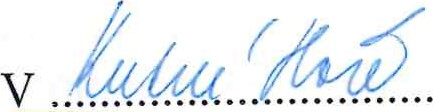 V Kutné Hoře